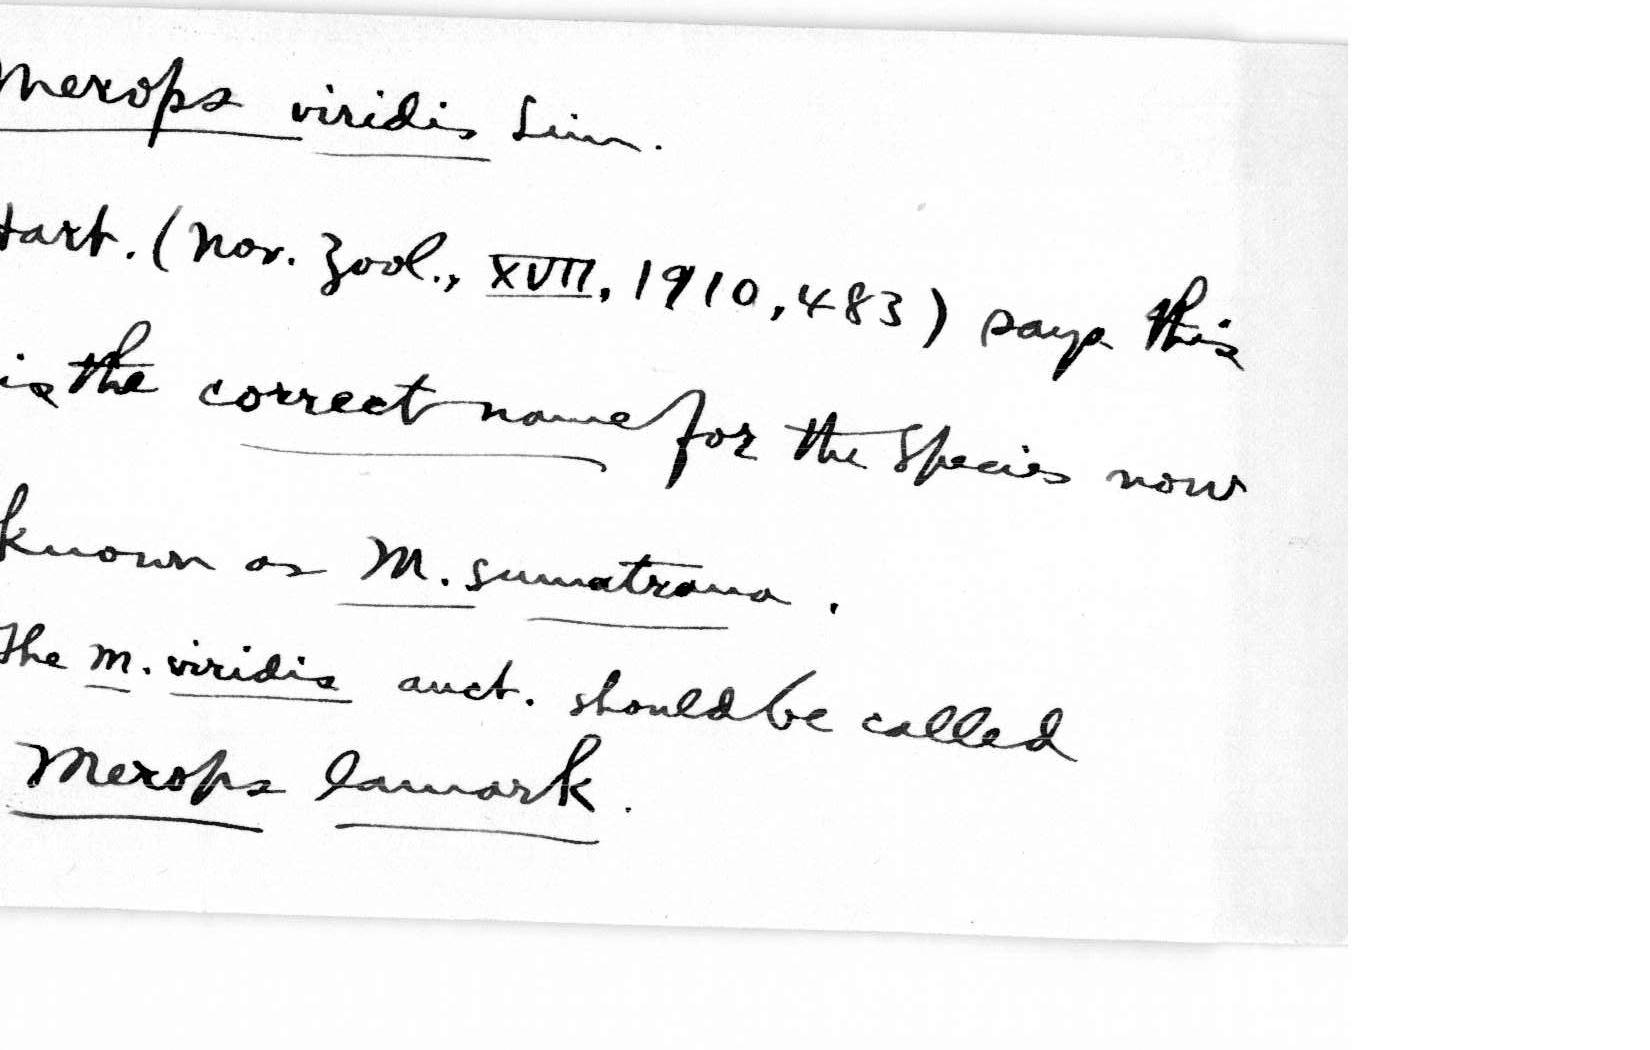 Merops viridis Linn.
Hart. (Nov. Zool., XVII, 1910, 483) says this
is the correct name for the Species now
known as M. sumatrana.
The M. viridis auct. should be called
Merops lamark.